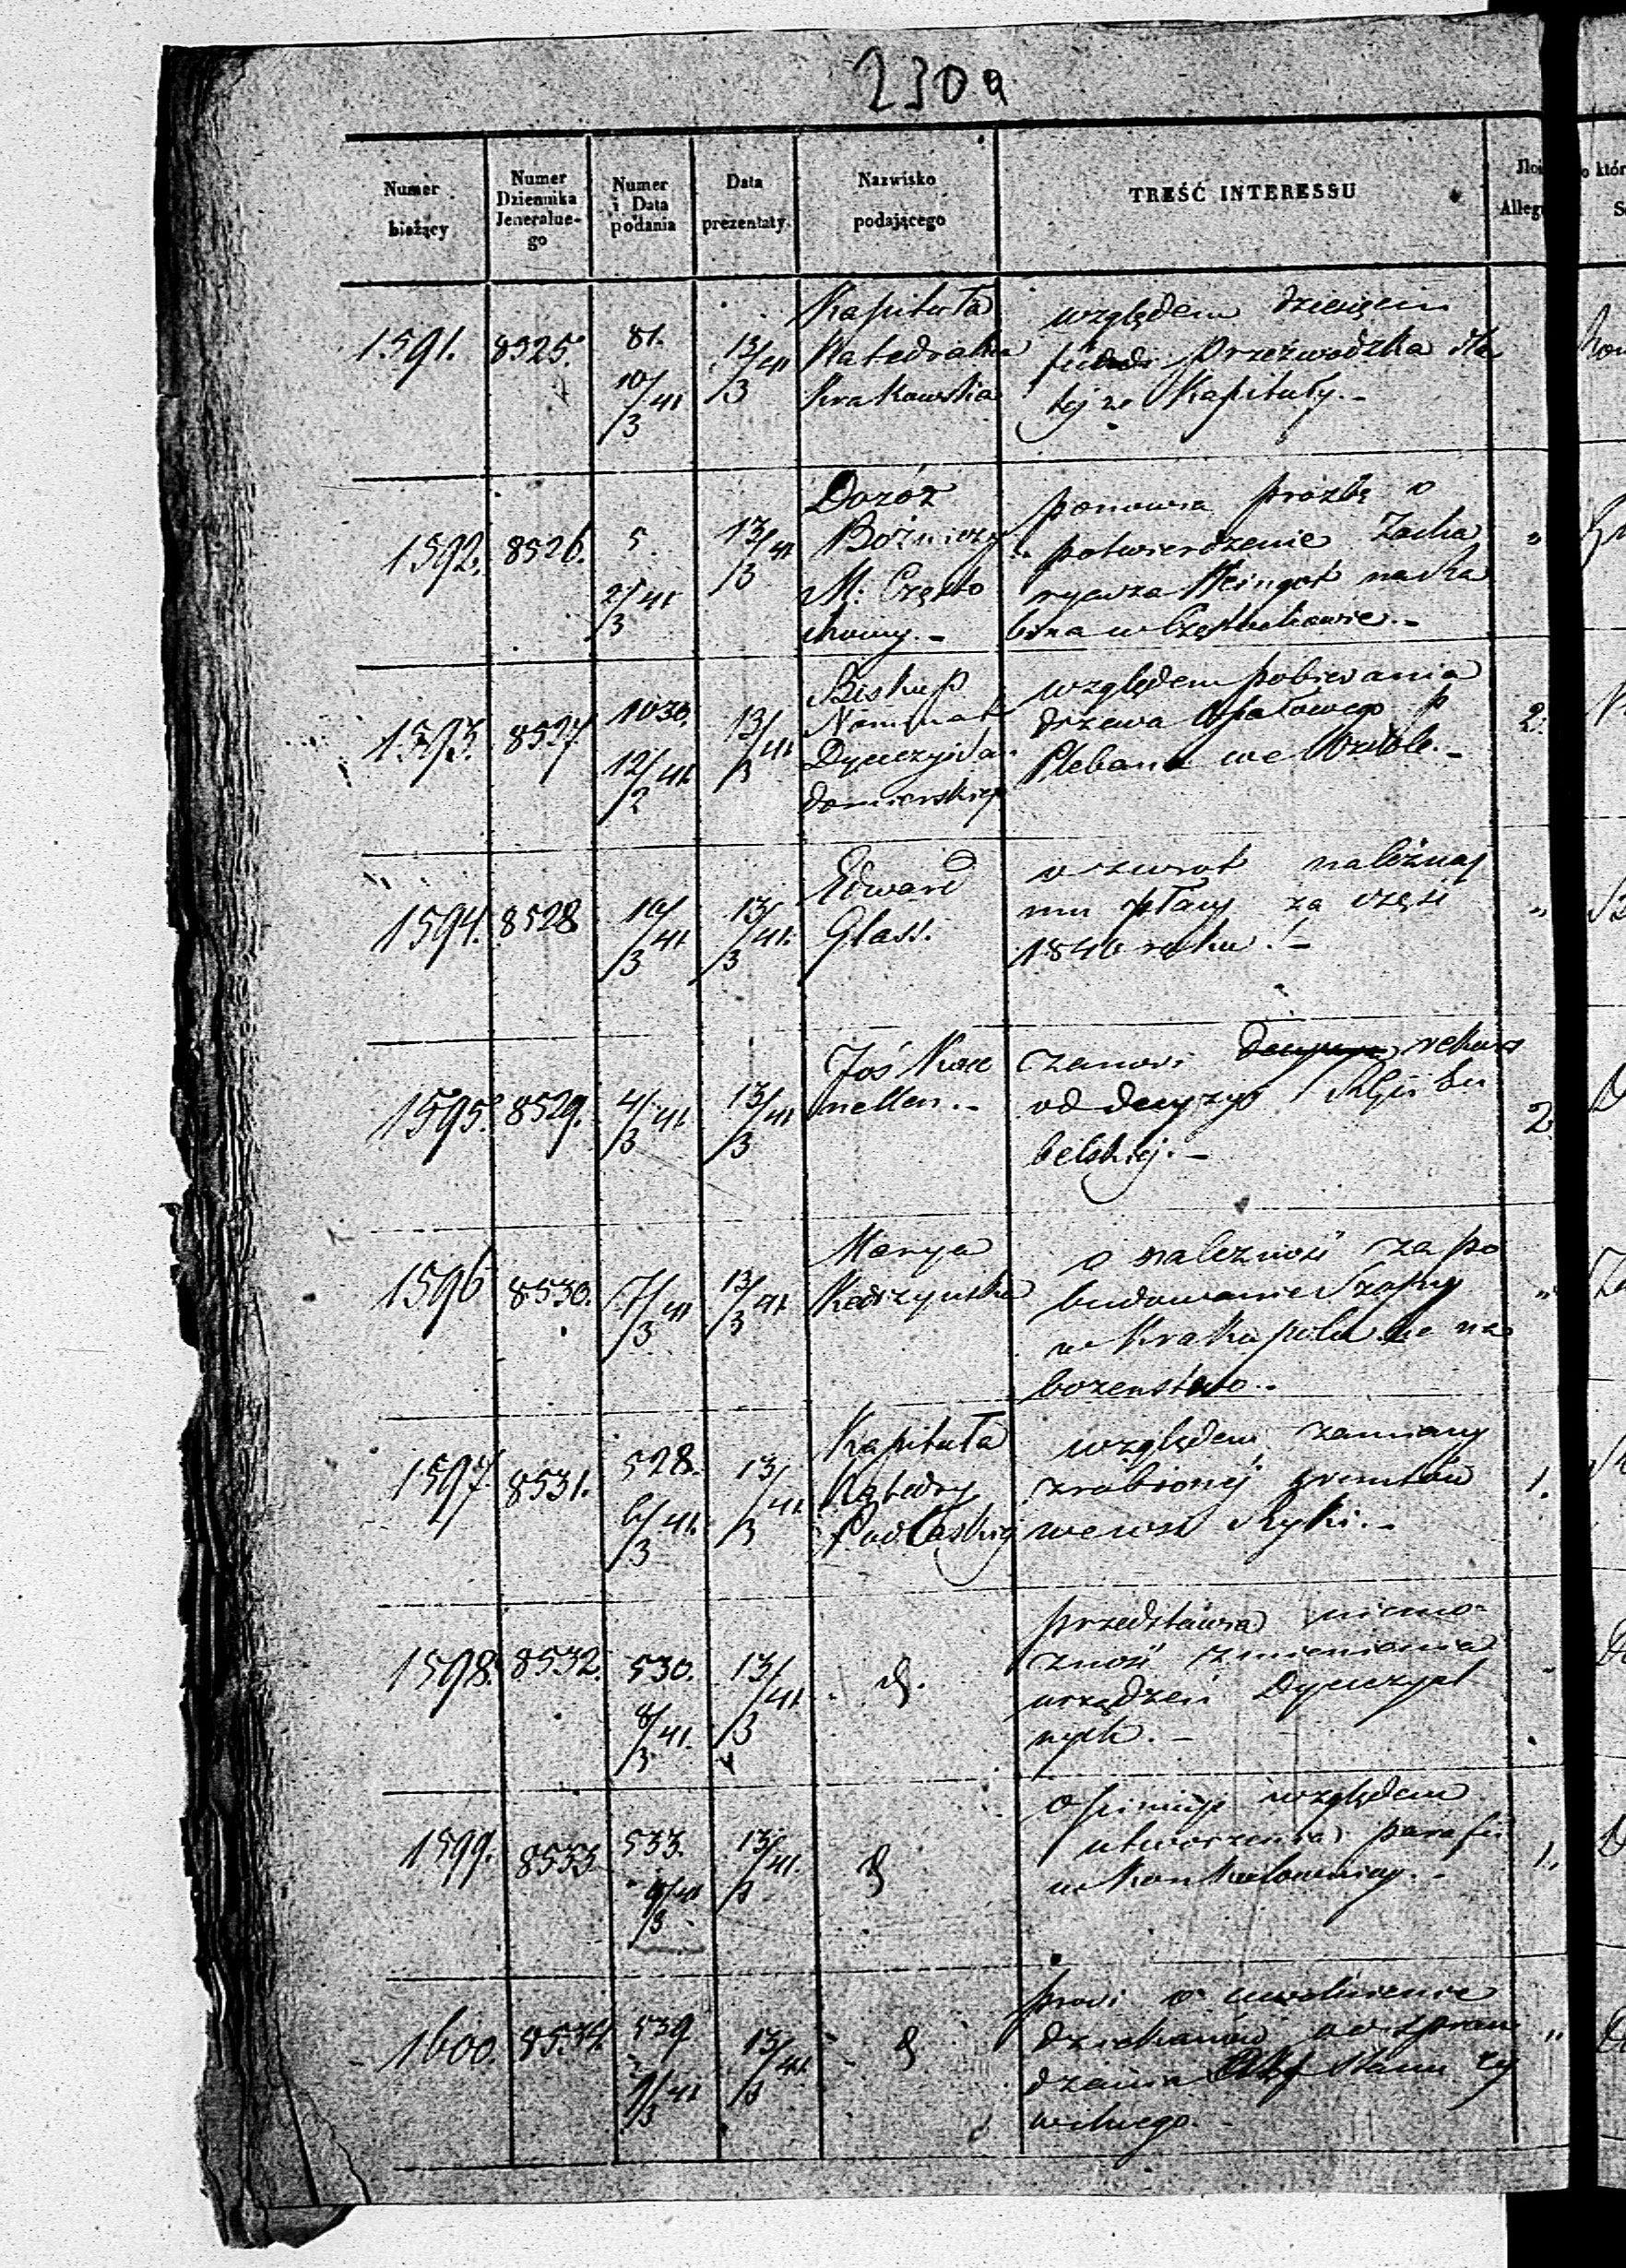 230a
Numer bieżący
Numer Dziennika Jeneralnego
Numer i Data podania
Data prezentaty
Nazwisko podającego
TREŚĆ INTERESSU
1591. 8525. 81. 10/3 41 13/3 41
Kapituła
Katedralna
Krakowska
względem dziesięcin
Przezwodzka dla
tej ze Kapituły.-
1592. 8526. 5. 2/3 41 13/3 41
Dozór
Bóżniczy
M. Często
chowy.-
ponawia prozbę o
potwierdzenie Zacha
ryasza Weingort na Ra
bina w Częstochowie.-
1593. 8527 1030. 12/2 41 13/3 41 2.
Biskup
Nominat
Dyecezyi San
domierskiej
względem pobierania
drzewa opałowego p
Plebana we
1594. 8528 10/3 41 13/3 41. "
Edward
Glass.
o zwrot należnej
mu płacy za część
1840 roku.-
1595. 8529. 4/3 41 13/3 41 2
Joś
zanosi rekurs
od decyzyi Rządu Lu
belskiej.-
1596 8530. 7/3 41 13/3 41 "
Marya
Kedrzynska
o należność za po
budowanie Szopy
w Krakopolu na na
bozenstwo.-
1597 8531. 528. 6/3 41. 13/3 41 1.
Kapituła
Katedry
Podlaskiej
względem zamiany
zrobionej gruntów
we wsi Ryki.-
1598. 8532. 530. 8/3 41. 13/3 41. d.
przedstawia niemo-
zność zmienienia
urządzeń Dyecezyal
nych.-
1599. 8533 533. 13/3 41. d 1.
opiniuje względem
utworzenia parafii
w
1600. 8534. 539 9/3 41 13/3 41. d "
prosi o uwolnienie
dziekanów od spraw
dzania Akt Stanu cy
wilnego.-